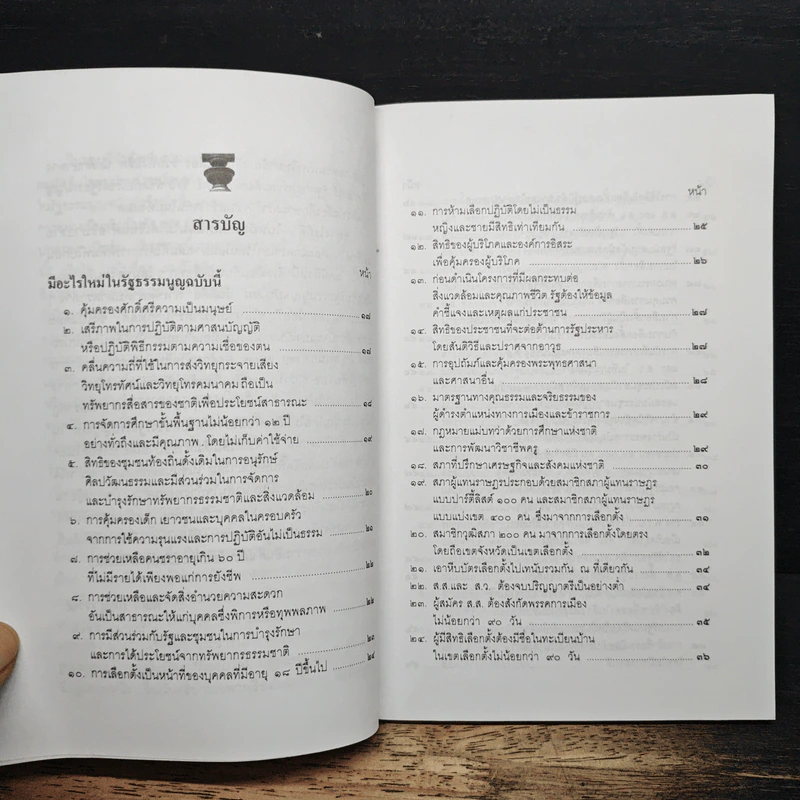 สารบัญ
หน้า
มีอะไรใหม่ในรัฐธรรมนูญฉบับนี้
๑. คุ้มครองศักดิ์ศรีความเป็นมนุษย์
๒. เสรีภาพในการปฏิบัติตามศาสนบัญญัติ
หรือปฏิบัติพิธีกรรมตามความเชื่อของตน
๓. คลื่นความถี่ที่ใช้ในการส่งวิทยุกระจายเสียง
วิทยุโทรทัศน์และวิทยุโทรคมนาคม ถือเป็น
ทรัพยากรสื่อสารของชาติเพื่อประโยชน์สาธารณะ
๔. การจัดการศึกษาขั้นพื้นฐานไม่น้อยกว่า ๑๒ ปี
อย่างทั่วถึงและมีคุณภาพ โดยไม่เก็บค่าใช้จ่าย ๑๙
๕. สิทธิของชุมชนท้องถิ่นดั้งเดิมในการอนุรักษ์
ศิลปวัฒนธรรมและมีส่วนร่วมในการจัดการ
และบำรุงรักษาทรัพยากรธรรมชาติและสิ่งแวดล้อม ๒๐
๖. การคุ้มครองเด็ก เยาวชนและบุคคลในครอบครัว
จากการใช้ความรุนแรงและการปฏิบัติอันไม่เป็นธรรม ๒๑
๗. การช่วยเหลือคนชราอายุเกิน ๖๐ ปี
ที่ไม่มีรายได้เพียงพอแก่การยังชีพ ๒๒
๘. การช่วยเหลือและจัดสิ่งอำนวยความสะดวก
อันเป็นสาธารณะให้แก่บุคคลซึ่งพิการหรือทุพพลภาพ ๒๒
๙. การมีส่วนร่วมกับรัฐและชุมชนในการบำรุงรักษา
และการได้ประโยชน์จากทรัพยากรธรรมชาติ
๑๐. การเลือกตั้งเป็นหน้าที่ของบุคคลที่มีอายุ ๑๘ ปีขึ้นไป ๒๔
หน้า
๑๑. การห้ามเลือกปฏิบัติโดยไม่เป็นธรรม
หญิงและชายมีสิทธิเท่าเทียมกัน ๒๕
๑๒. สิทธิของผู้บริโภคและองค์การอิสระ
เพื่อคุ้มครองผู้บริโภค ๒๖
๑๓. ก่อนดำเนินโครงการที่มีผลกระทบต่อ
สิ่งแวดล้อมและคุณภาพชีวิต รัฐต้องให้ข้อมูล
คำชี้แจงและเหตุผลแก่ประชาชน ๒๗
๑๔. สิทธิของประชาชนที่จะต่อต้านการรัฐประหาร
โดยสันติวิธีและปราศจากอาวุธ ๒๗
๑๕. การอุปถัมภ์และคุ้มครองพระพุทธศาสนา
และศาสนาอื่น ๒๘
๑๖. มาตรฐานทางคุณธรรมและจริยธรรมของ
ผู้ดำรงตำแหน่งทางการเมืองและข้าราชการ ๒๙
๑๗. กฎหมายแม่บทว่าด้วยการศึกษาแห่งชาติ
และการพัฒนาวิชาชีพครู ๒๙
๑๘. สภาที่ปรึกษาเศรษฐกิจและสังคมแห่งชาติ ๓๐
๑๙. สภาผู้แทนราษฎรประกอบด้วยสมาชิกสภาผู้แทนราษฎร
แบบปาร์ตี้ลิสต์ ๑๐๐ คน และสมาชิกสภาผู้แทนราษฎร
แบบแบ่งเขต ๔๐๐ คน ซึ่งมาจากการเลือกตั้ง ๓๑
๒๐. สมาชิกวุฒิสภา ๒๐๐ คน มาจากการเลือกตั้งโดยตรง
โดยถือเขตจังหวัดเป็นเขตเลือกตั้ง ๓๒
๒๑. เอาหีบบัตรเลือกตั้งไปเทนับรวมกัน ณ ที่เดียวกัน ๓๔
๒๒. ส.ส.และ ส.ว. ต้องจบปริญญาตรีเป็นอย่างต่ำ ๓๔
๒๓. ผู้สมัคร ส.ส. ต้องสังกัดพรรคการเมือง
ไม่น้อยกว่า ๙๐ วัน ๓๕
๒๔. ผู้มีสิทธิเลือกตั้งต้องมีชื่อในทะเบียนบ้าน
ในเขตเลือกตั้งไม่น้อยกว่า ๙๐ วัน ๓๖